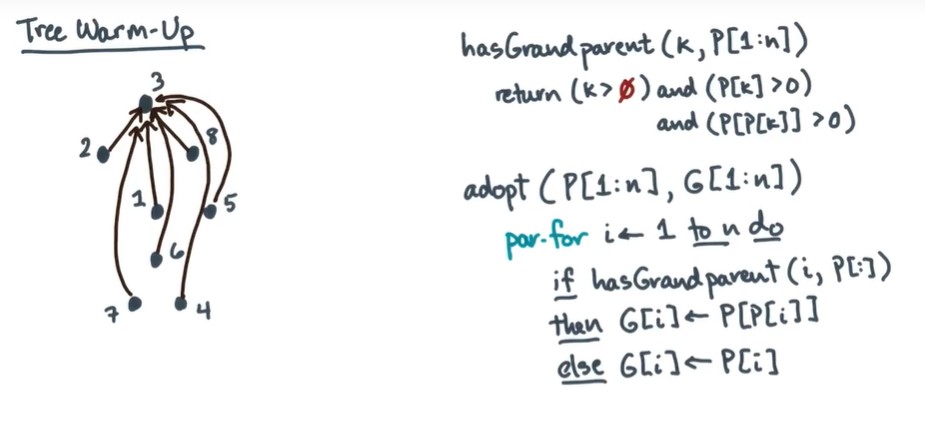 Tree Warm-Up
3
2
8
1
5
6
7
4
hasGrandparent (k, P[1:n])
return (k > ∅) and (P[k] > 0)
and (P[P[k]] > 0)
adopt (P[1:n], G[1:n])
par-for i ← 1 to n do
if hasGrandparent (i, P[:])
then G[i] ← P[P[i]]
else G[i] ← P[i]